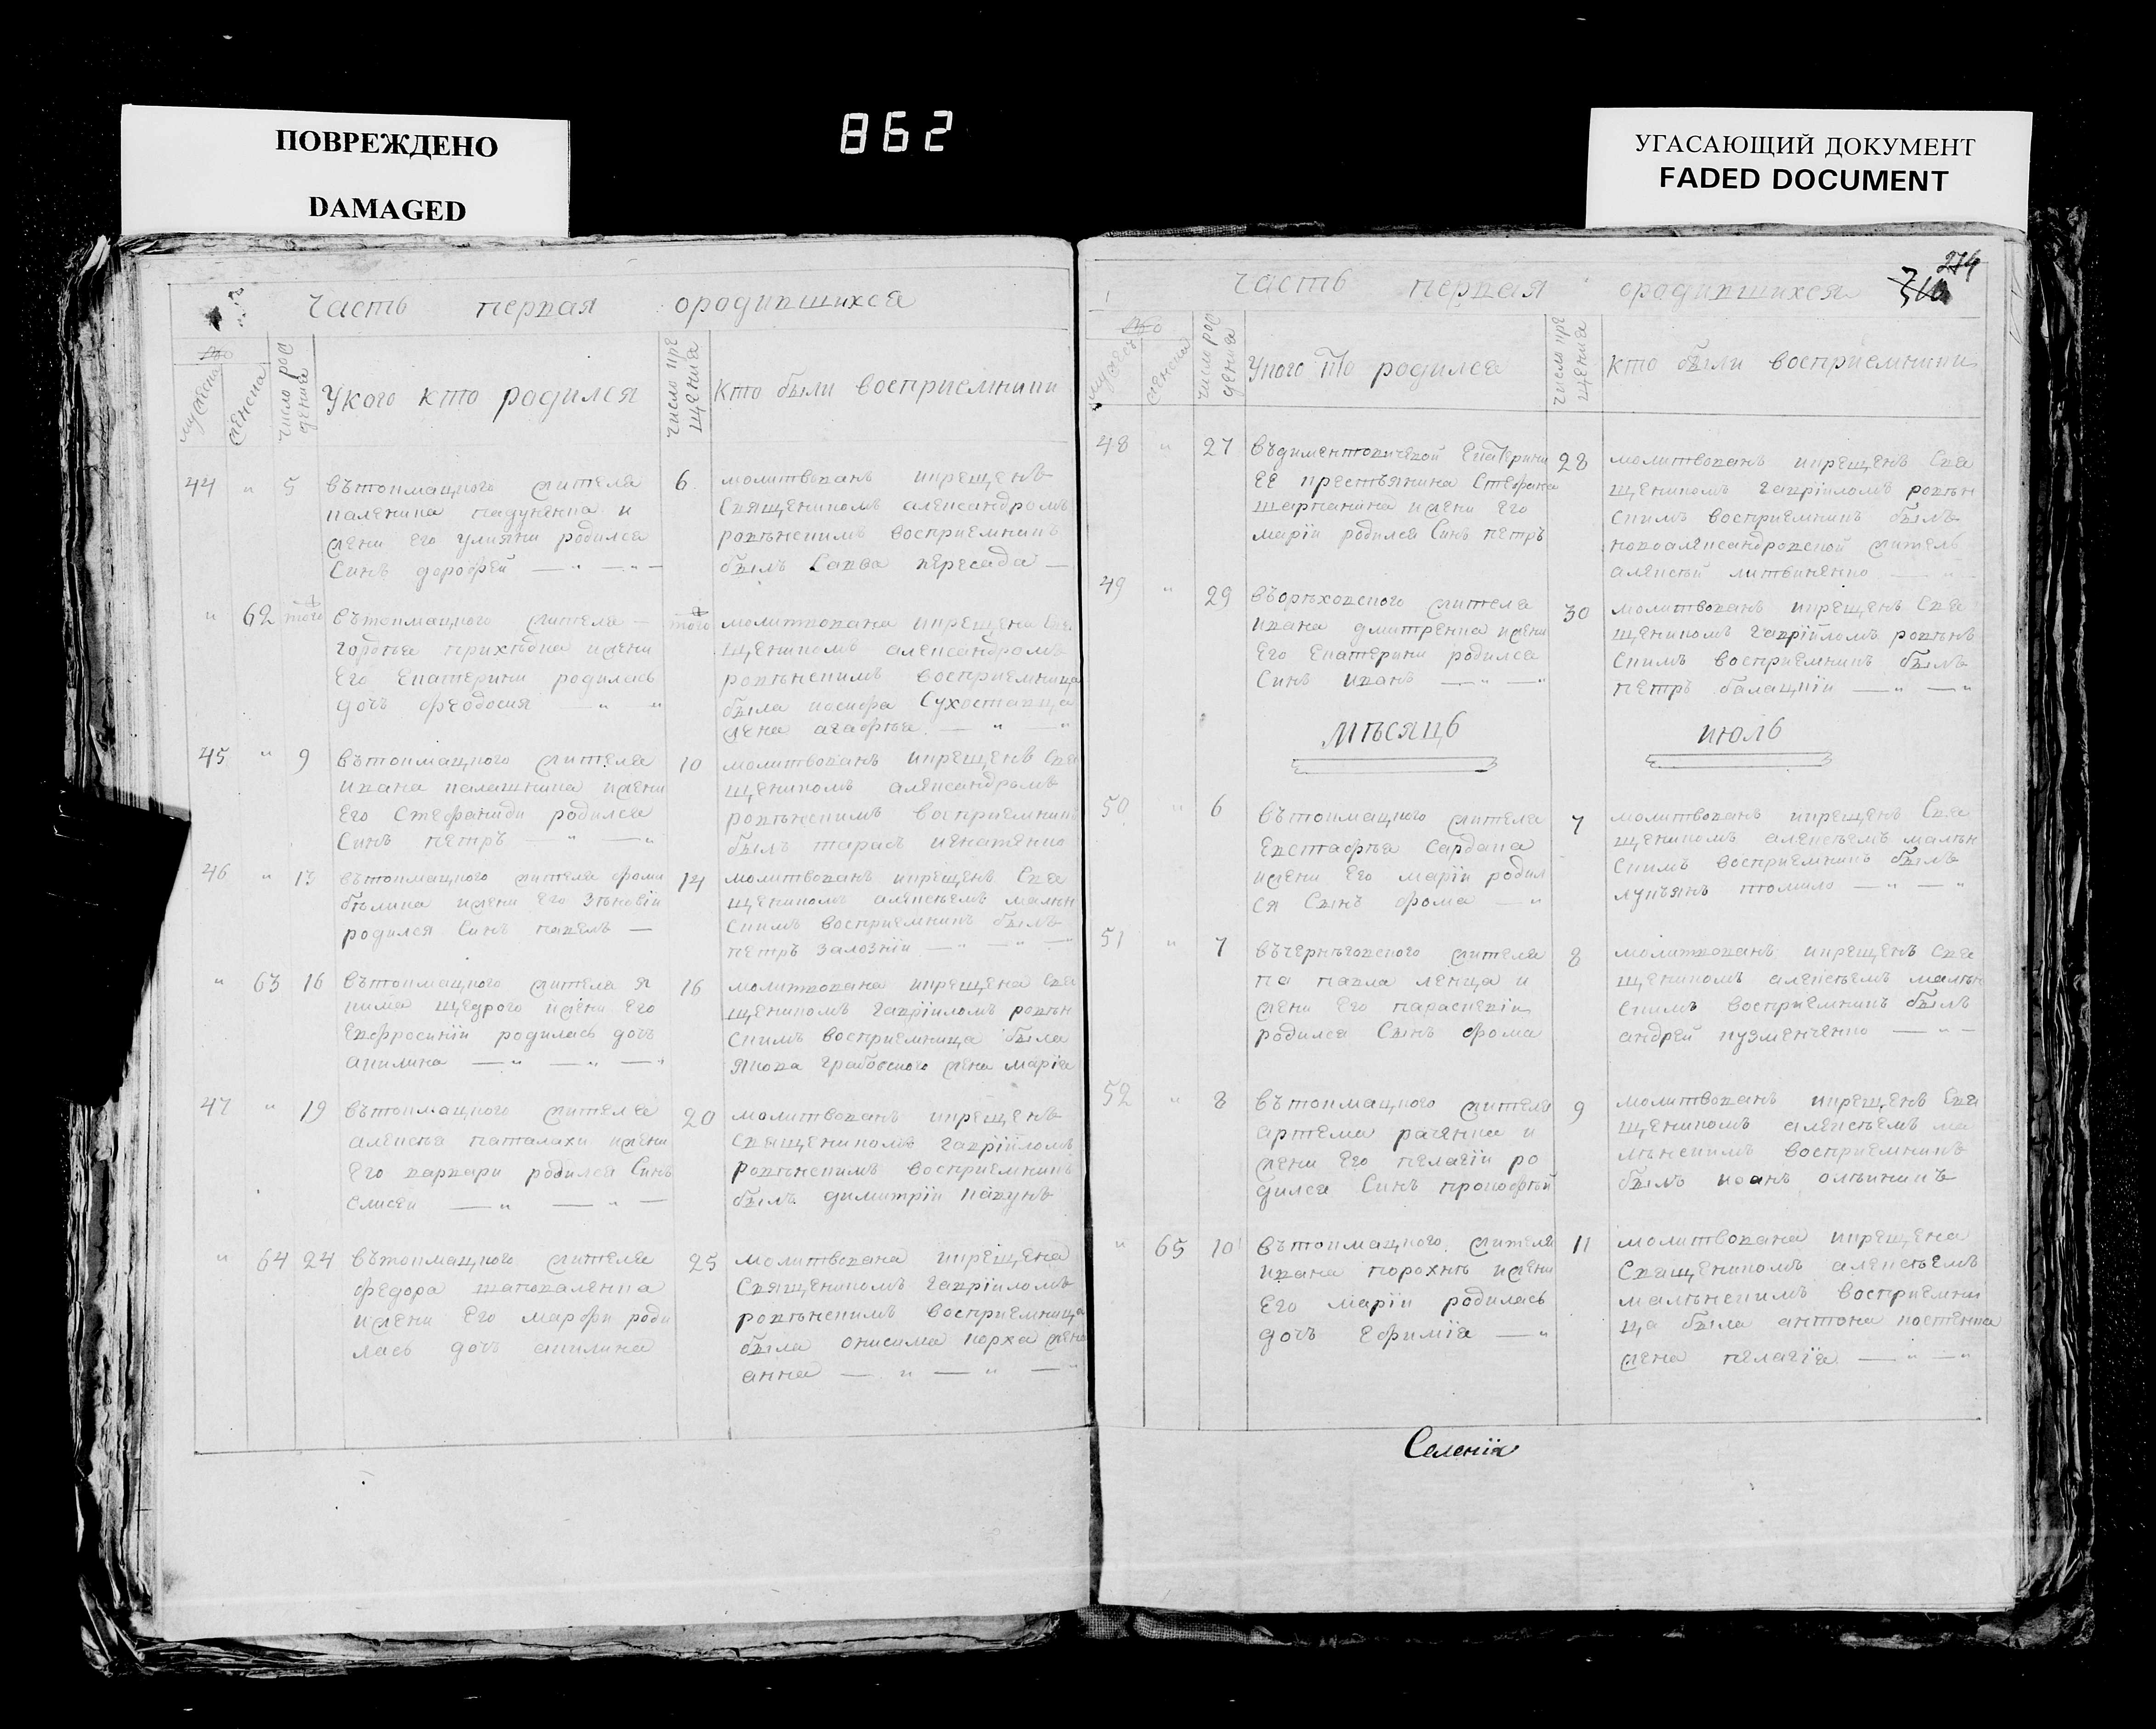 ПОВРЕЖДЕНО
DAMAGED
862
УГАСАЮЩИЙ ДОКУМЕНТ
FADED DOCUMENT
часть первая ородившихся
мужеска
женска
число рож
дения
Укого кто родился
число кре
щения
Кто были восприемники
44 " 5 вътокмацкого жителя
павленка и
жени его улияни родился
Синъ дорофей — " — " —
6 молитвованъ икрещенъ
Священикомъ александромъ
рокъженимъ восприемникъ
былъ Савва пересада —
" 62 того вътокмацкого жителя —
гордѣя ижени
Его Екатерини родилась
дочь феодосия — " "
того молитвована икрещена Свя
щеникомъ александромъ
восприемница
была иосифа Сухоставца
жена агафья — " — "
45 " 9 вътокмацкого жителя
ивана калашника ижени
Его Стефаниди родился
Синъ петръ — " — "
10 молитвованъ икрещенъ Свя
щеникомъ александромъ
восприемникъ
былъ тарасъ игнатенко
46 " 13 вътокмацкого жителя фоми
бѣлика ижени Его Зѣновіи
родился Синъ павелъ —
14 молитвованъ икрещенъ Свя
щеникомъ алексѣемъ малѣн
скимъ восприемникъ былъ
петръ Залозній — " — " — "
" 63 16 вътокмацкого жителя я
кима щедрого ижени Его
Евфросиніи родилась дочь
акилина — " — " — "
16 молитвована икрещена Свя
щеникомъ гавріиломъ
скимъ восприемница была
якова грабовского жена марія
47 " 19 вътокмацкого жителя
алексѣя паталахи ижени
Его варвари родился Синъ
Елисей — " — " —
20 молитвованъ икрещенъ
Священикомъ гавріиломъ
восприемникъ
былъ димитрій
" 64 24 вътокмацкого жителя
федора шаповаленка
ижени Его марфи роди
лась дочь акилина
25 молитвована икрещена
Священикомъ гавріиломъ
восприемница
была онисима корха жена
анна — " — " — "
274
часть первая ородившихся
мужеска
женска
число рож
дения
Укого кто родился
число кре
щения
кто были восприемники
48 " 27 Екатерини
ЕЕ крестьянина Стефана
ижени Его
маріи родился Синъ петръ
28 молитвованъ икрещенъ Свя
щеникомъ гавріиломъ
скимъ восприемникъ былъ
новоалександровской житель
алексѣй литвиненко — "
49 " 29 въорѣховского жителя
ивана дмитренка ижени
Его Екатерини родился
Синъ иванъ — " — "
30 молитвованъ икрещенъ Свя
щеникомъ гавріиломъ
скимъ восприемникъ былъ
петръ балацкій — " — "
мѣсяцъ июль
50 " 6 вътокмацкого жителя
Евстафѣя Сардака
ижени Его маріи родил
ся Сынъ фома — "
7 молитвованъ икрещенъ Свя
щеникомъ алексѣемъ малѣн
скимъ восприемникъ былъ
лукъянъ томило — " — "
51 " 7 въчернѣговского жителя
павла ленца и
жени Его параскевіи
родился Сынъ фома
8 молитвованъ икрещенъ Свя
щеникомъ алексѣемъ малѣн
скимъ восприемникъ былъ
андрей кузменченко — " —
52 " 8 вътокмацкого жителя
артема и
жени Его пелагіи ро
дился Синъ прокофѣй
9 молитвованъ икрещенъ Свя
щеникомъ алексѣемъ ма
лѣнскимъ восприемникъ
былъ иоанъ
" 65 10 вътокмацкого жителя
ивана порохнѣ ижени
Его маріи родилась
дочь Ефимія — "
11 молитвована икрещена
Священикомъ алексѣемъ
малѣнскимъ восприемни
ца была антона костенка
жена пелагія — " — "
Селенія